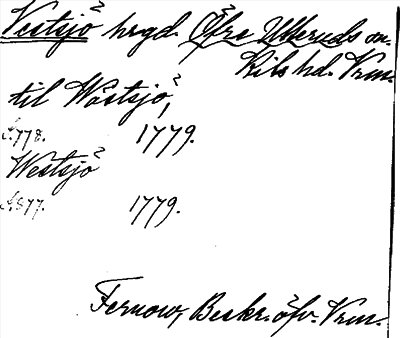 Vestsjö hrgd. Öfre Ulleruds sn.
Kils hd. Vrm.
til Wästsjö,
S. 778. 1779.
Westsjö
S. 877. 1779.
Fernow, Beskr. öfv. Vrm.